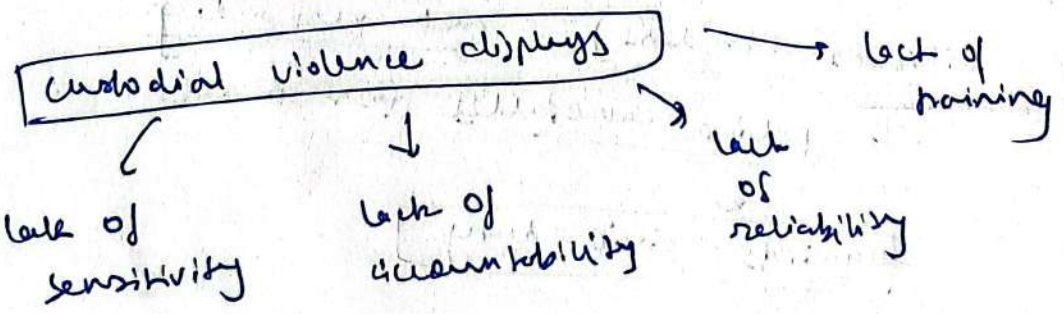 custodial violence displays
lack of
training
lack of
sensitivity
lack of
accountability
lack
of
reliability